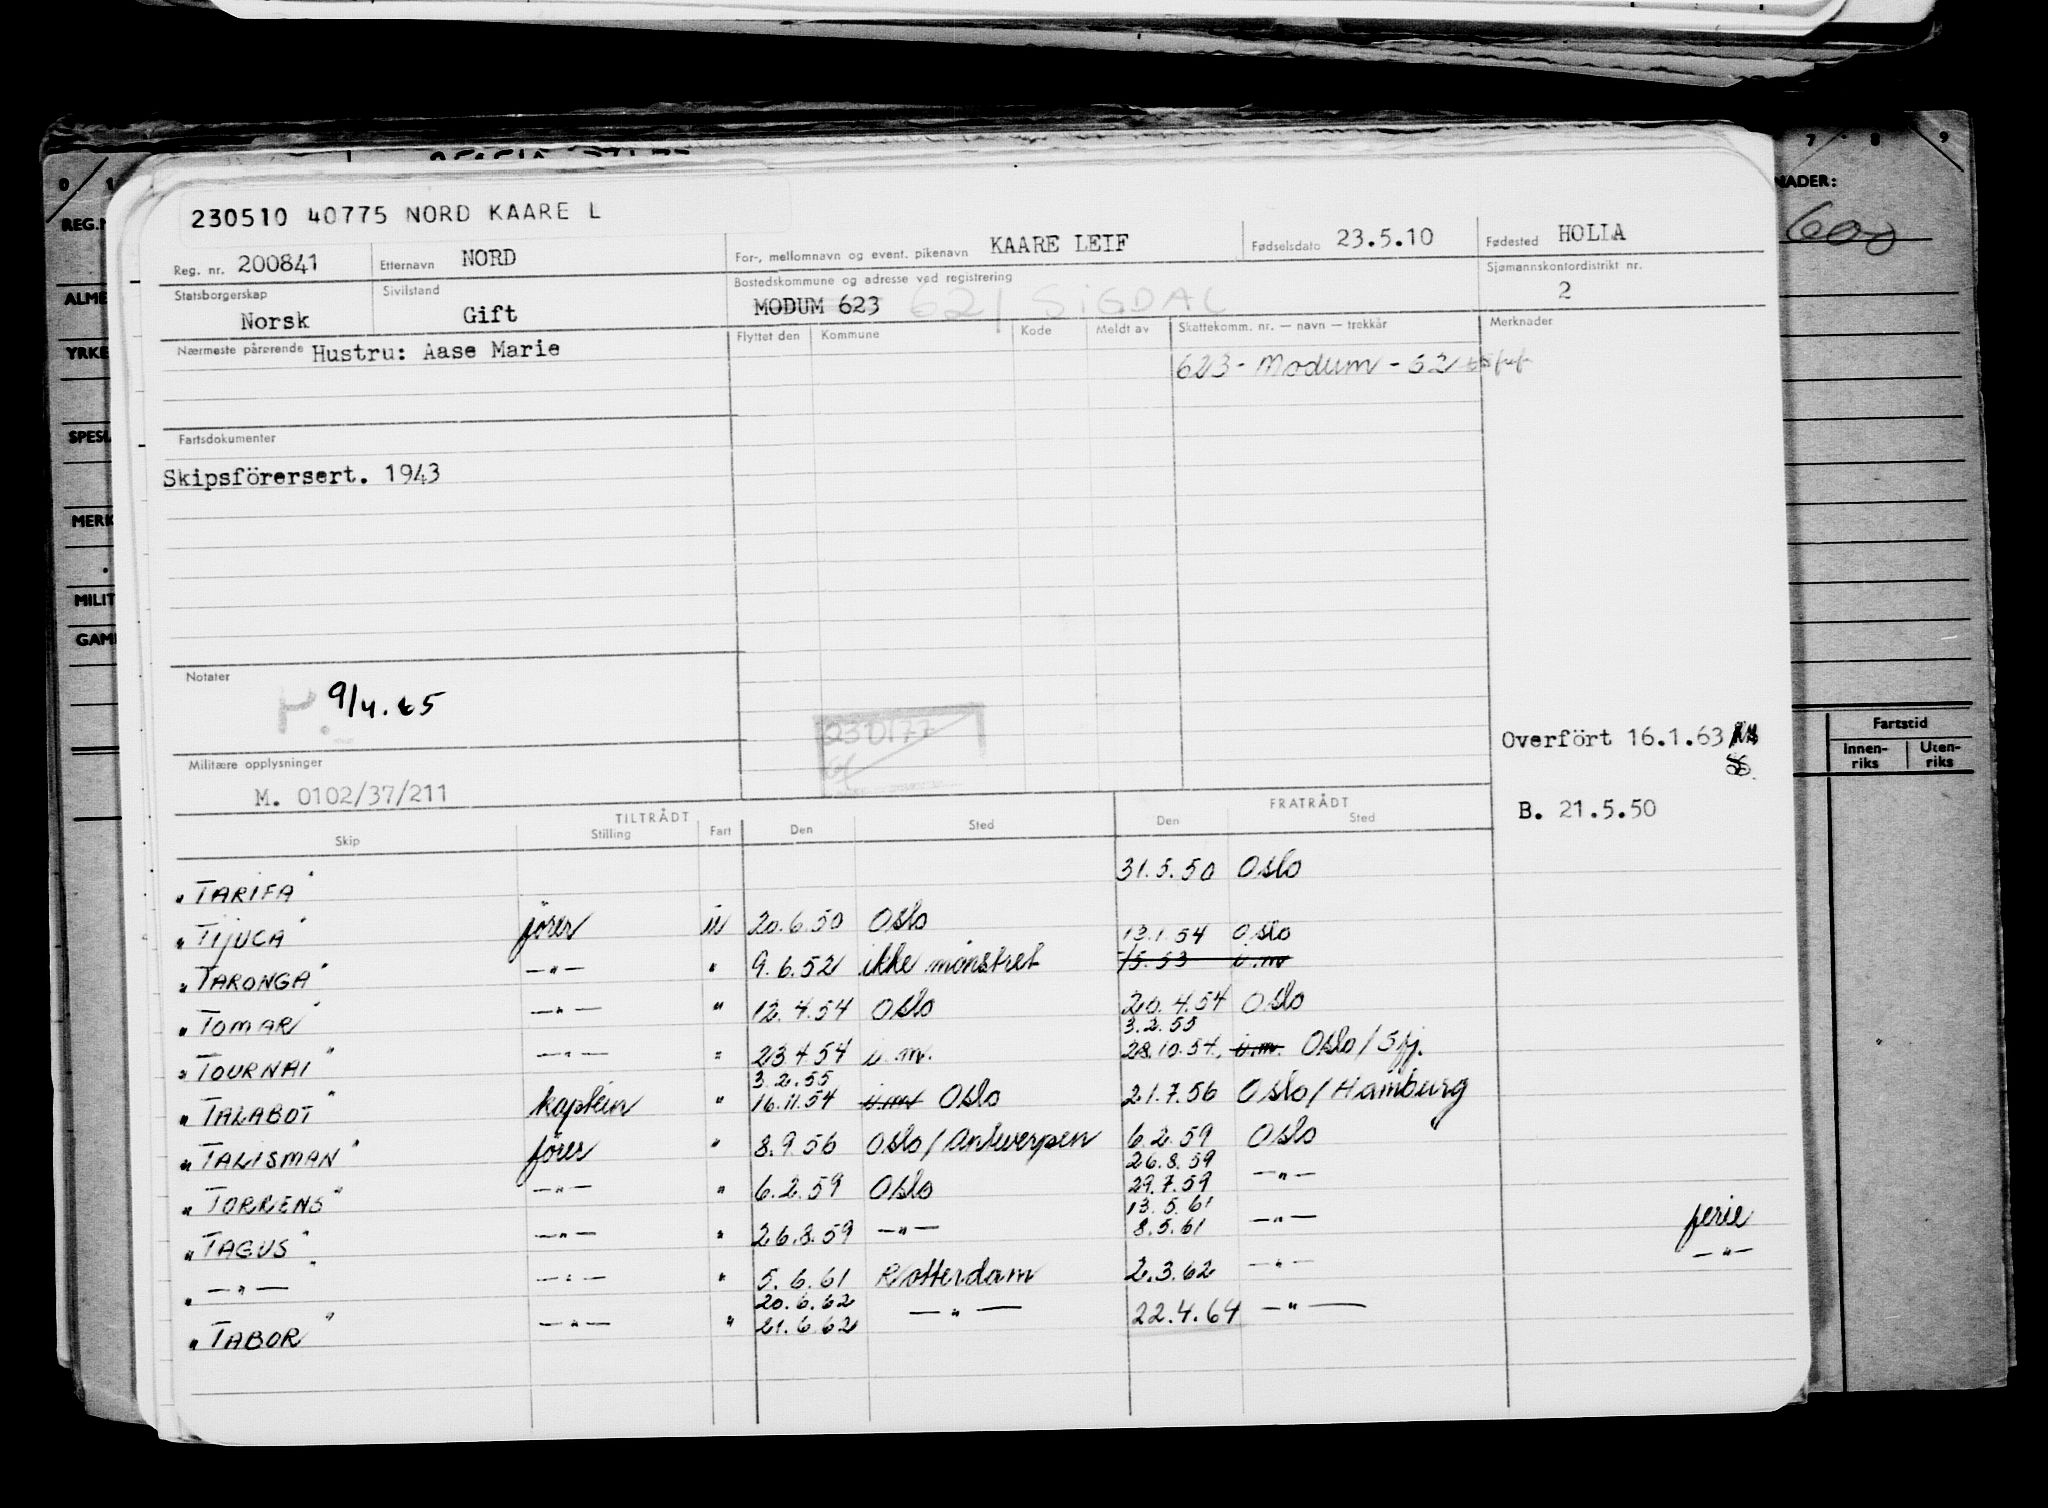 230510 40775 NORD KAARE L
Reg. nr. 200841 Etternavn NORD For-, mellomnavn og event. pikenavn KAARE LEIF Fødselsdato 23.5.10 Fødested HOLLA
Statsborgerskap Norsk Sivilstand Gift Bostedskommune og adresse ved registrering MODUM 623 621 SIGDAL Sjømannskontordistrikt nr. 2
Nærmeste pårørende Hustru: Aase Marie Flyttet den Kommune Kode Meldt av Skattekomm. nr. — navn — trekkår Merknader
623 - Modum - 62
Fartsdokumenter
Skipsförersert. 1943
Notater
9/4.65
230177
Overfört 16.1.63
Militære opplysninger
M. 0102/37/211
B. 21.5.50
TILTRÅDT FRATRÅDT
Skip Stilling Fart Den Sted Den Sted
"TARIFA" 31.5.50 Oslo
"TIJUCA" förer u 20.6.50 Oslo 13.1.54 Oslo
"TARONGA" —"— " 9.6.52 ikke mönstret 15.53 u.m
"TOMAR" —"— " 12.4.54 Oslo 20.4.54 Oslo
3.2.55
"TOURNAI" —"— " 23.4.54 u.m. 28.10.54 u.m. Oslo/Sjj.
3.2.55
"TALABOT" kaptein " 16.11.54 u.m Oslo 21.7.56 Oslo/Hamburg
"TALISMAN" förer " 8.9.56 Oslo/Antwerpen 6.2.59 Oslo
26.8.59
"TORRENS" —"— " 6.2.59 Oslo 29.7.59 —"—
13.5.61
"TAGUS" —"— " 26.8.59 —"— 8.5.61 —"— ferie
" —"— " —"— " 5.6.61 Rotterdam 2.3.62 —"— —"—
20.6.62
"TABOR" —"— " 21.6.62 —"— 22.4.64 —"—
0 1 7 8 9
REG.N
NADER:
600
ALME
YRKE
SPESI
MERK
MILIT
GAM
Fartstid
Innen-riks Uten-riks